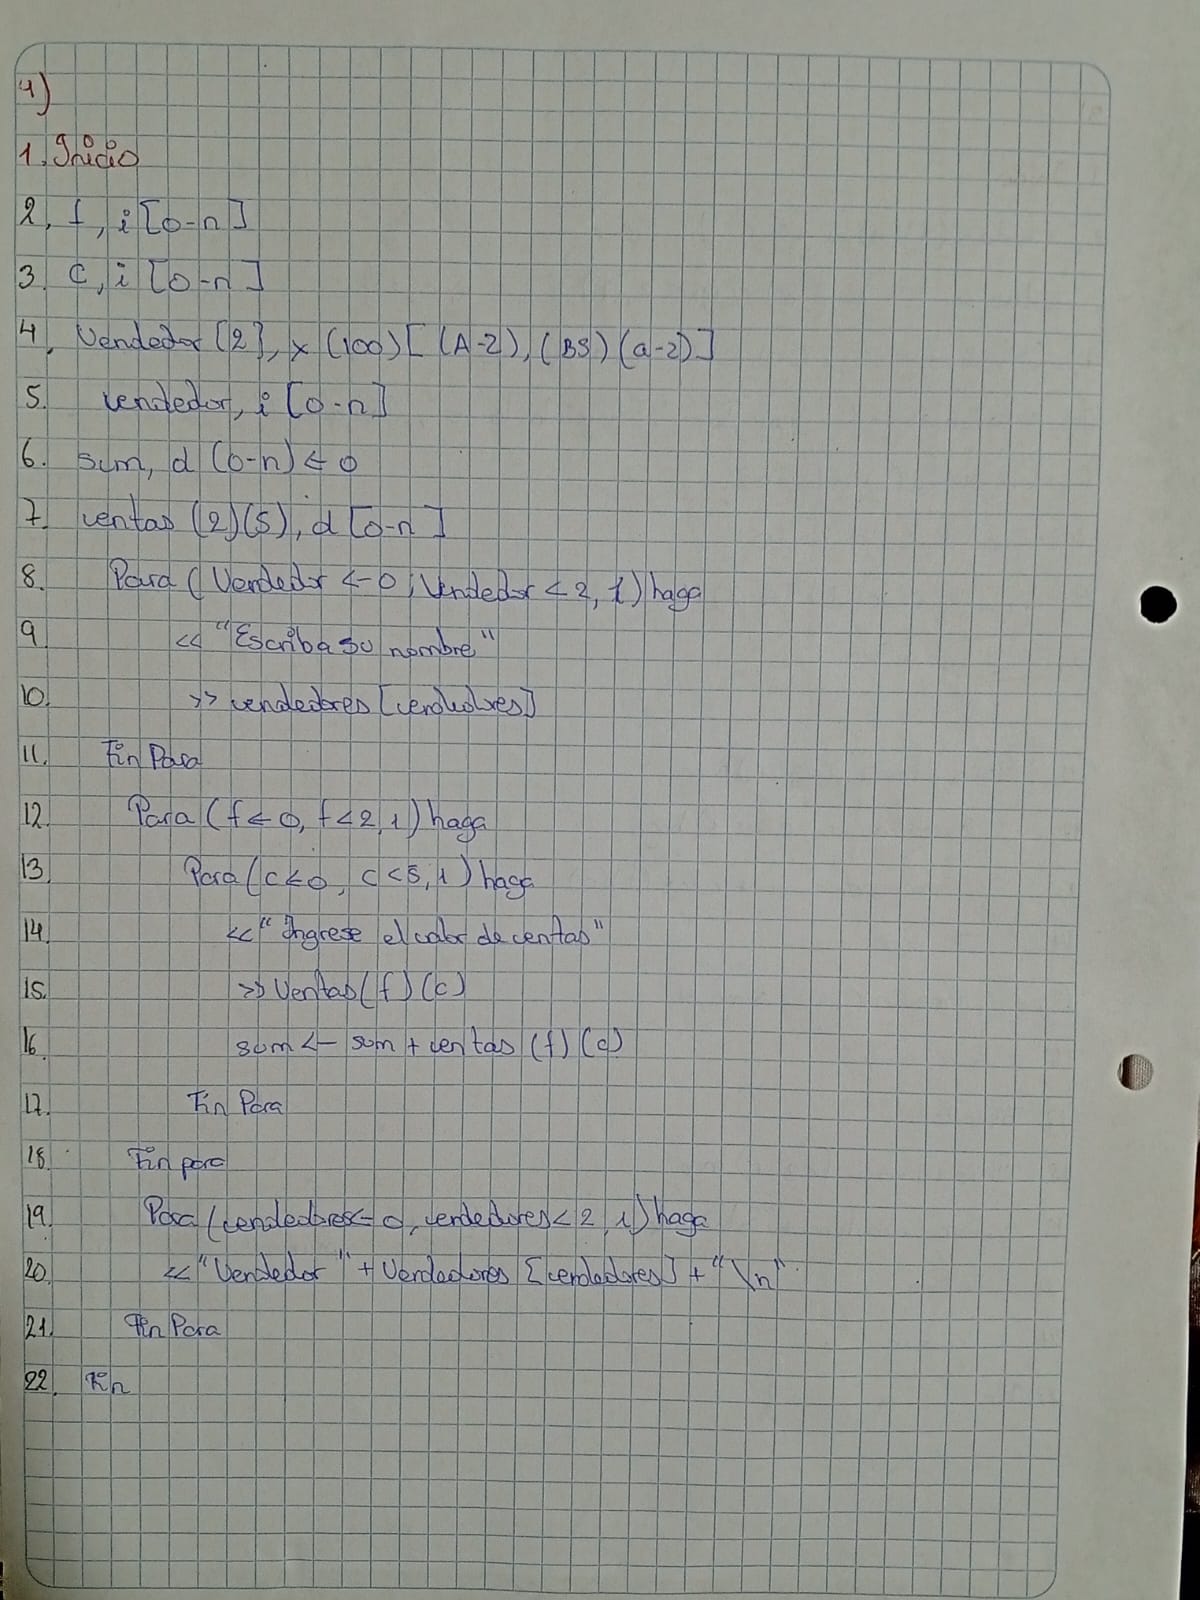 4)
1. Inicio
2. f, i [0-n]
3. c, i [0-n]
4. Vendedor [2], x (100) [ (A-Z), (BS) (a-z) ]
5. vendedor, i [0-n]
6. sum, d (0-n) ← 0
7. ventas (2)(5), d [0-n]
8. Para ( Vendedor ← 0; Vendedor < 2, 1) haga
9 << "Escriba su nombre"
10. >> vendedores [vendedores]
11. Fin Para
12. Para ( f ← 0, f < 2, 1) haga
13. Para (c ← 0, c < 5, 1) haga
14. << "Ingrese el valor de ventas"
15. >> Ventas (f) (c)
16. sum ← sum + ventas (f) (c)
17. Fin Para
18. Fin para
19. Para (vendedores ← 0, vendedores < 2, 1) haga
20. << "Vendedor" + Vendedores [vendedores] + "\n"
21. Fin Para
22. Fin